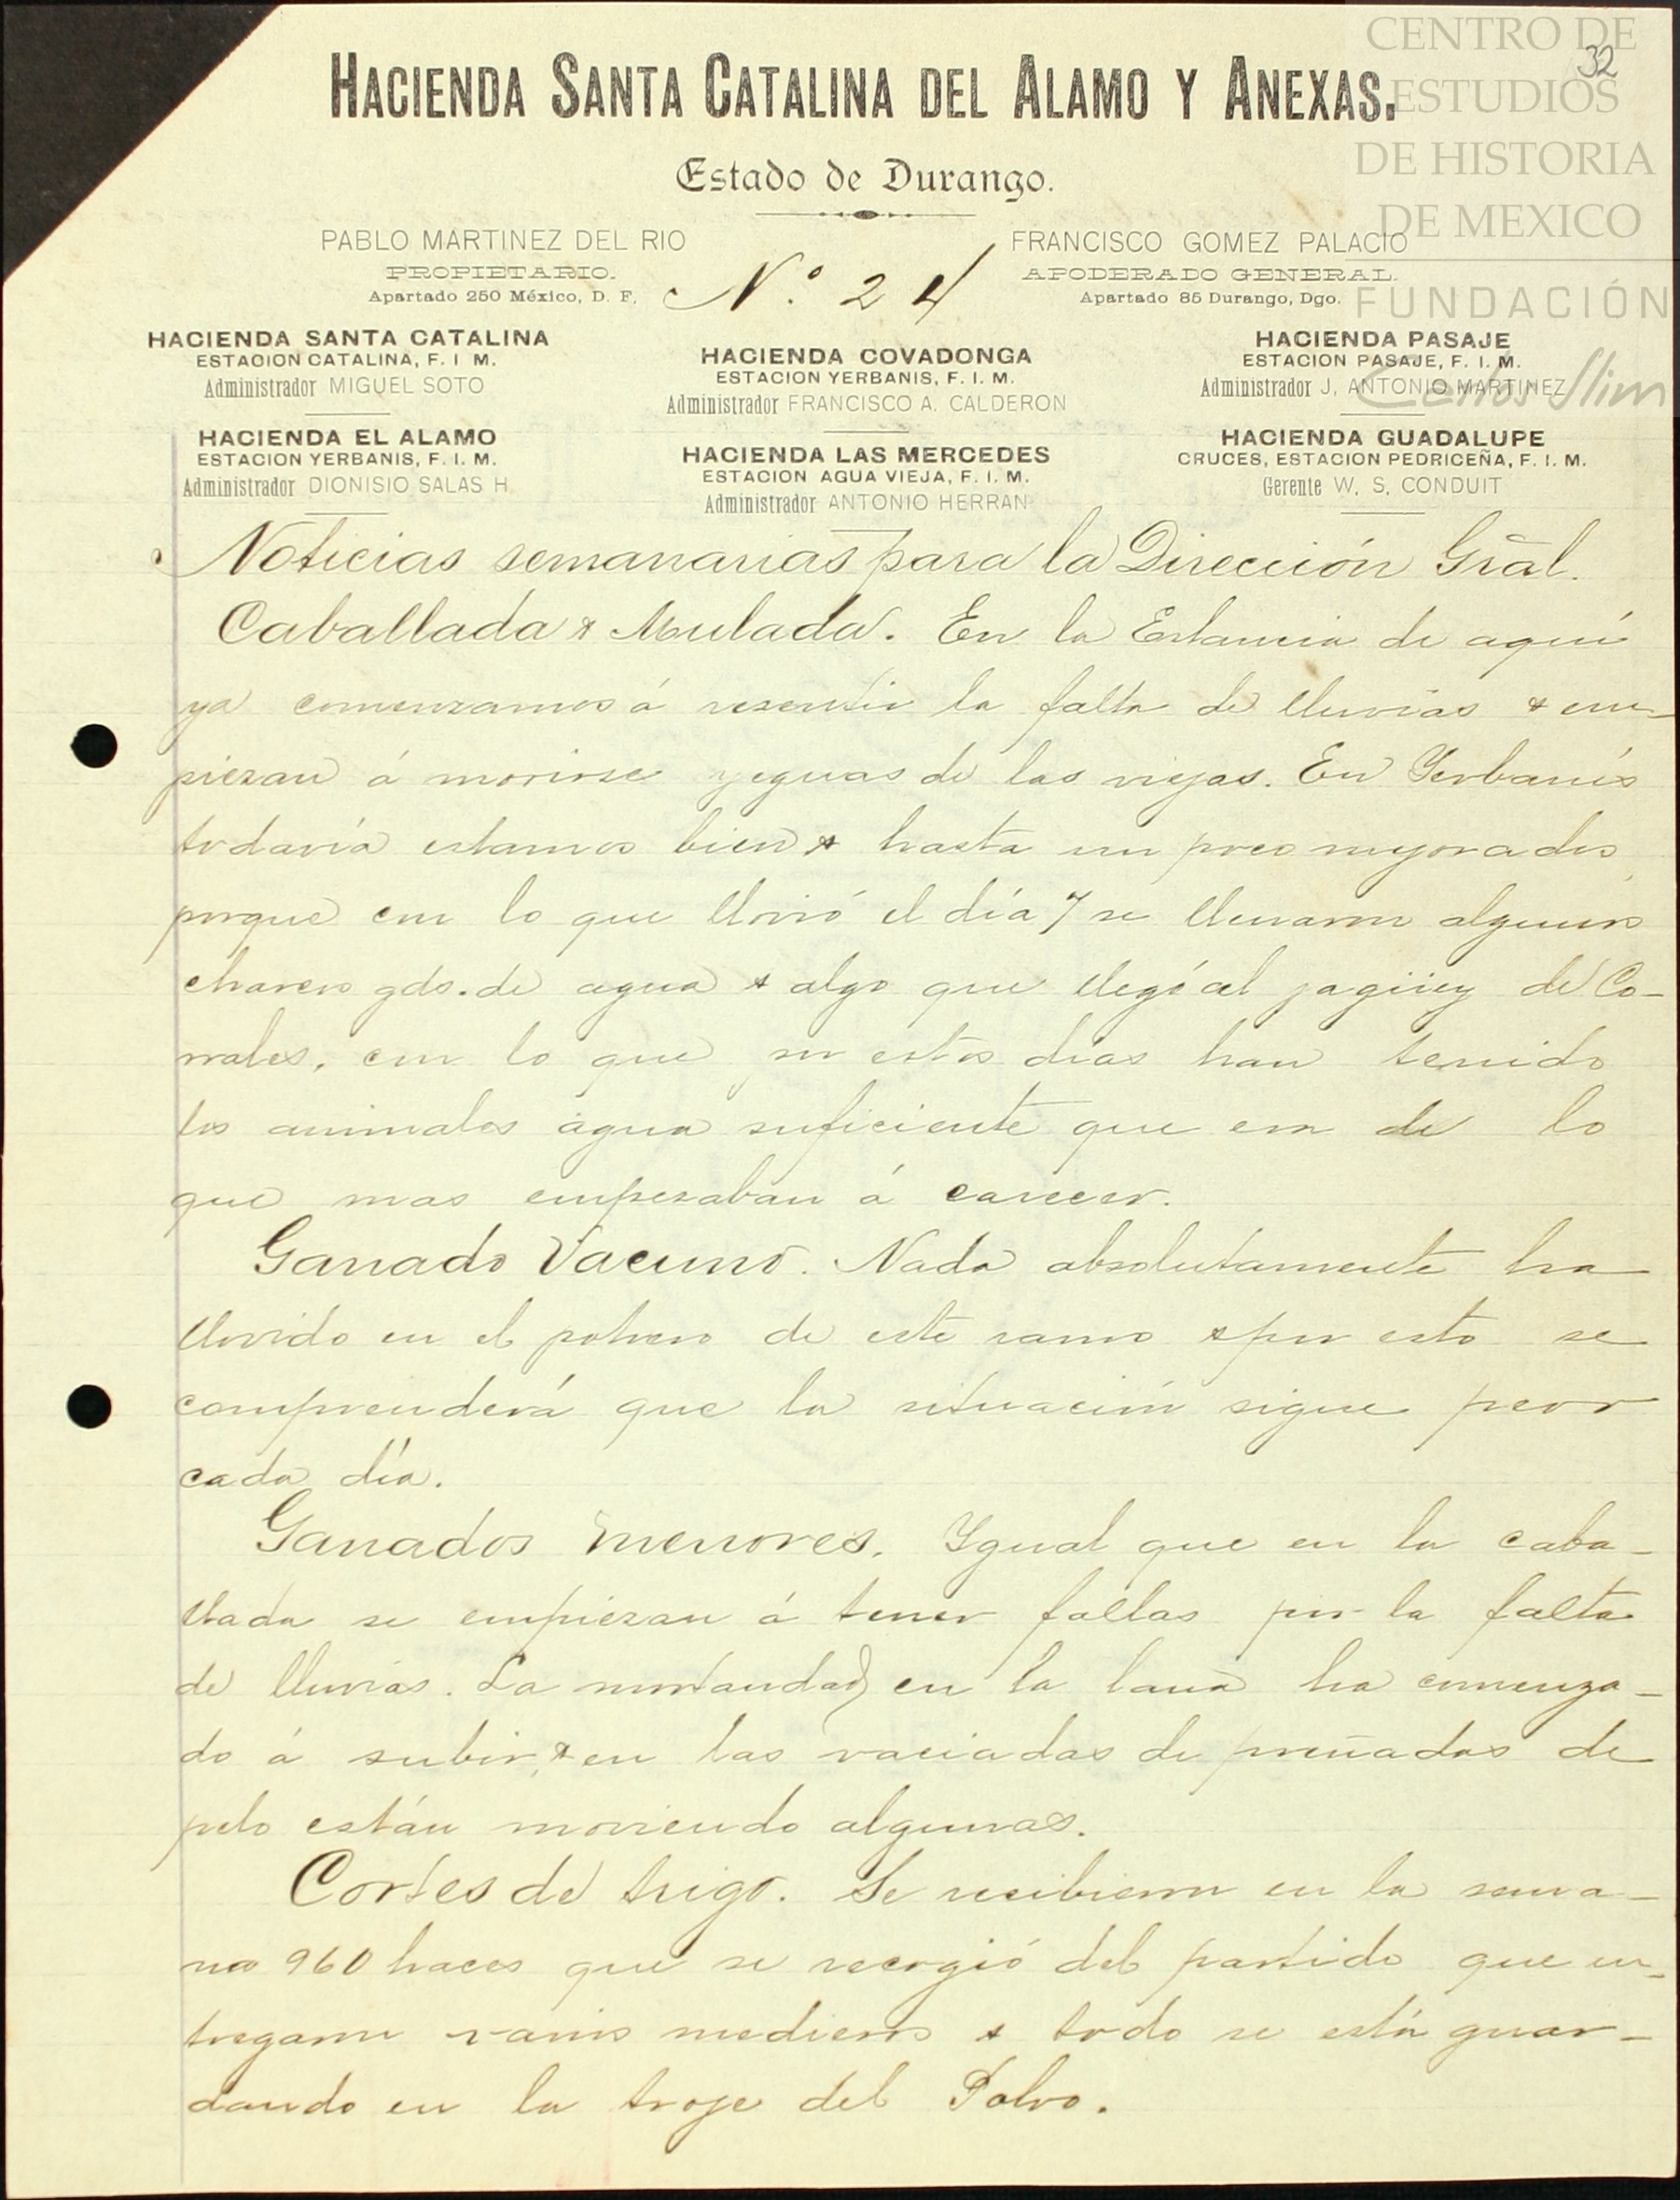 CENTRO DE
ESTUDIOS
DE HISTORIA
DE MEXICO
FUNDACIÓN
Carlos Slim
32
HACIENDA SANTA CATALINA DEL ALAMO Y ANEXAS.
Estado de Durango.
PABLO MARTINEZ DEL RIO
PROPIETARIO.
Apartado 250 México, D. F.
N.º 24
FRANCISCO GOMEZ PALACIO
APODERADO GENERAL.
Apartado 85 Durango, Dgo.
HACIENDA SANTA CATALINA
ESTACION CATALINA, F. I M.
Administrador MIGUEL SOTO
HACIENDA EL ALAMO
ESTACION YERBANIS, F. I. M.
Administrador DIONISIO SALAS H
HACIENDA COVADONGA
ESTACION YERBANIS, F. I. M.
Administrador FRANCISCO A. CALDERON
HACIENDA LAS MERCEDES
ESTACION AGUA VIEJA, F. I. M.
Administrador ANTONIO HERRAN
HACIENDA PASAJE
ESTACION PASAJE, F. I. M.
Administrador J, ANTONIO MARTINEZ
HACIENDA GUADALUPE
CRUCES, ESTACION PEDRICEÑA, F. I. M.
Gerente W. S. CONDUIT
Noticias semanarias para la Dirección Gral.
Caballada & Mulada. En la Estancia de aquí
ya comenzamos á resentir la falta de lluvias & em-
piezan á morirse yeguas de las viejas. En Yerbanís
todavía estamos bien & hasta un poco mejorados
porque con lo que llovió el día 7 se llenaron algunos
charcos gds. de agua & algo que llegó al jagüey de Co-
rrales, con lo que por estos días han tenido
los animales agua suficiente que era de lo
que mas empezaban á carecer.
Ganado Vacuno. Nada absolutamente ha
llovido en el potrero de este ramo & por esto se
comprenderá que la situación sigue peor
cada día.
Ganados menores. Ygual que en la caba-
llada se empiezan á tener fallas por la falta
de lluvias. La mortandad en la lana ha comenza-
do á subir, & en las vaciadas de preñadas de
pelo están moriendo algunas.
Cortes de trigo. Se recibieron en la sema-
na 960 haces que se recogió del partido que en-
tregaron varios medieros & todo se está guar-
dando en la troje del Polvo.